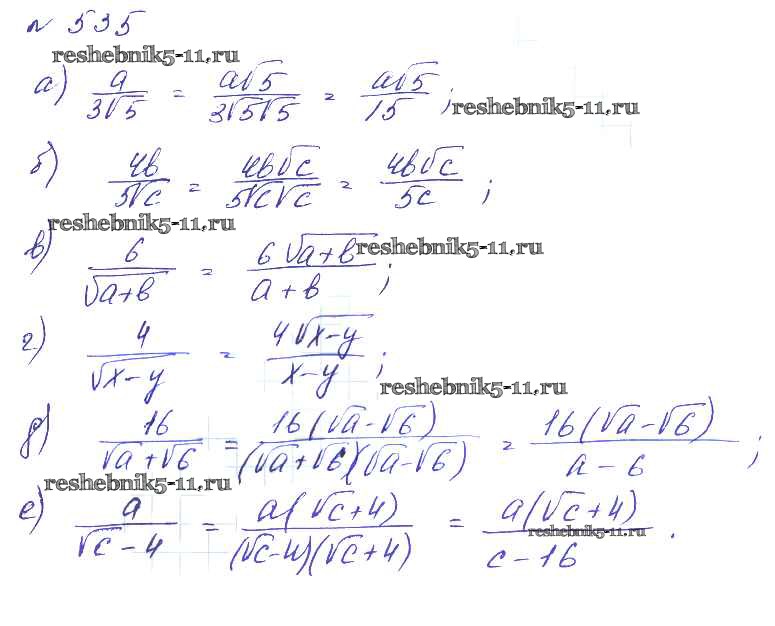 № 535
reshebnik5-11.ru
а) a/(3√5) = a√5/(3√5√5) = a√5/15;
reshebnik5-11.ru
б) 4b/(5√c) = 4b√c/(5√c√c) = 4b√c/(5c);
reshebnik5-11.ru
в) 6/√(a+b) = 6√(a+b)/(a+b);
reshebnik5-11.ru
г) 4/√(x-y) = 4√(x-y)/(x-y);
reshebnik5-11.ru
д) 16/(√a+√6) = 16(√a-√6)/((√a+√6)(√a-√6)) = 16(√a-√6)/(a-6);
reshebnik5-11.ru
е) a/(√c-4) = a(√c+4)/((√c-4)(√c+4)) = a(√c+4)/(c-16).
reshebnik5-11.ru